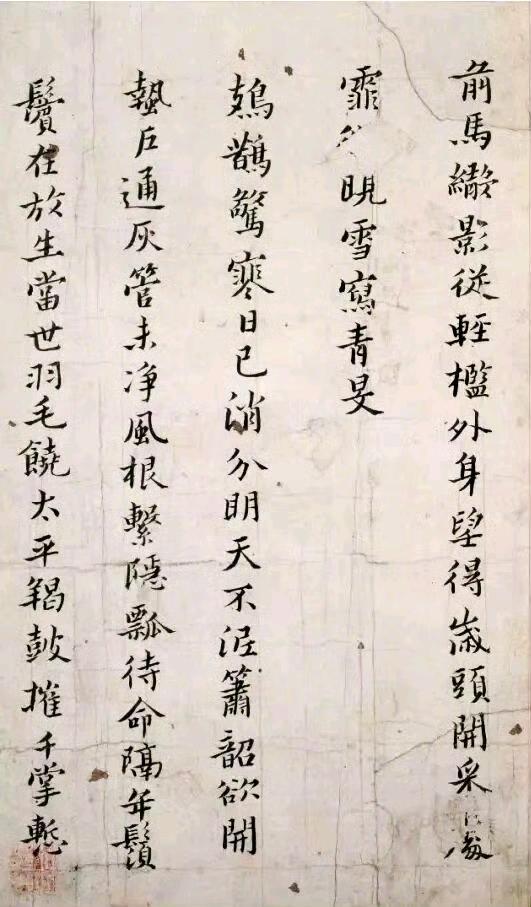 前馬繖影從輕檻外身望得嵗頭開采
霏晛雪寫青旻
鳷鵲驚寒日已消分明天不泥簫韶欲開
蟄戶通灰管未淨風根繫隱瓢待命隔年鬚
鬢在放生當世羽毛饒太平羯鼓摧千掌慙